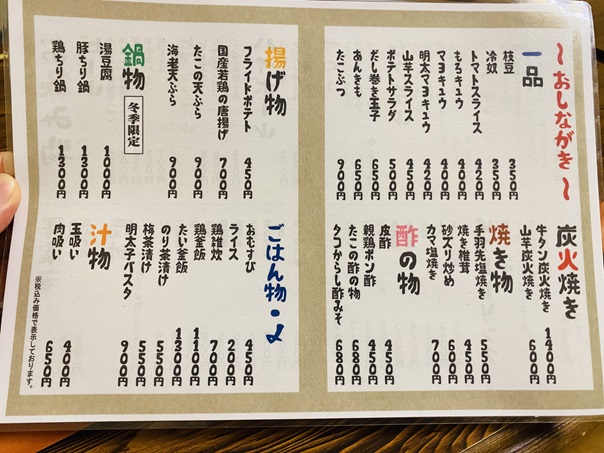 ～おしながき～
一品
枝豆 350円
冷奴 350円
トマトスライス 420円
もろキュウ 400円
マヨキュウ 400円
明太マヨキュウ 420円
山芋スライス 450円
ポテトサラダ 500円
だし巻き玉子 650円
あんきも 650円
たこぶつ 900円
炭火焼き
牛タン炭火焼き 1400円
山芋炭火焼き 600円
焼き物
手羽先塩焼き 550円
焼き椎茸 450円
砂ズリ炒め 600円
カマ塩焼き 700円
酢の物
皮酢 450円
親鶏ポン酢 450円
たこの酢の物 680円
タコからし酢みそ 680円
揚げ物
フライドポテト 450円
国産若鶏の唐揚げ 700円
たこの天ぷら 900円
海老天ぷら 900円
鍋物 冬季限定
湯豆腐 1000円
豚ちり鍋 1300円
鶏ちり鍋 1300円
ごはん物・〆
おむすび 450円
ライス 200円
鶏雑炊 700円
鶏釜飯 1100円
たい釜飯 1300円
のり茶漬け 550円
梅茶漬け 550円
明太子パスタ 900円
汁物
玉吸い 400円
肉吸い 650円
※税込み価格で表示しております。